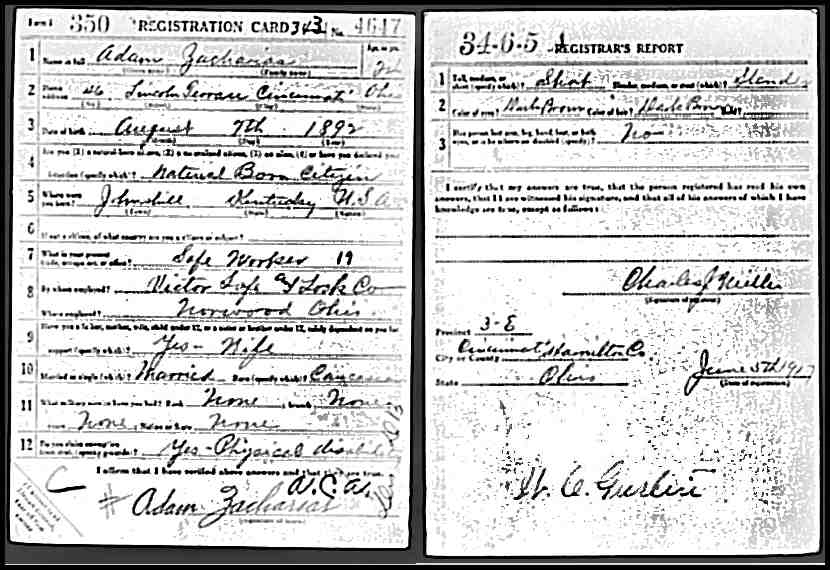 Form 1 350 REGISTRATION CARD 343 No. 4647
1 Name in full Adam Zacharias Age, in yrs.
(Given name) (Family name)
2 Home address 26 Lincoln Terrace Cincinnati Ohio
(No.) (Street) (City) (State)
3 Date of birth August 7th 1892
(Month) (Day) (Year)
4 Are you (1) a natural born citizen, (2) a naturalized citizen, (3) an alien, (4) or have you declared your
intention (specify which)? Natural Born Citizen
5 Where were you born? Johnshill Kentucky U.S.A.
(Town) (State) (Nation)
6 If not a citizen, of what country are you a citizen or subject?
7 What is your present trade, occupation, or office? Safe Worker 19
8 By whom employed? Victor Safe & Lock Co
Where employed? Norwood Ohio
9 Have you a father, mother, wife, child under 12, or a sister or brother under 12, solely dependent on you for
support (specify which)? Yes - Wife
10 Married or single (which)? Married Race (specify which)? Caucasian
11 What military service have you had? Rank None ; branch None
years None ; Nation or State None
12 Do you claim exemption from draft (specify grounds)? Yes - Physical disability
I affirm that I have verified above answers and that they are true.
C
Adam Zacharias
(Signature or mark)
34-6-5 A REGISTRAR'S REPORT
1 Tall, medium, or short (specify which)? Short Slender, medium, or stout (which)? Slender
2 Color of eyes? Dark Brown Color of hair? Dark Brown Bald?
3 Has person lost arm, leg, hand, foot, or both eyes, or is he otherwise disabled (specify)? No
I certify that my answers are true, that the person registered has read his own
answers, that I have witnessed his signature, and that all of his answers of which I have
knowledge are true, except as follows:
Charles J Miller
(Signature of registrar)
Precinct 3-E
City or County Cincinnati Hamilton Co.
State Ohio June 5th 1917
(Date of registration)